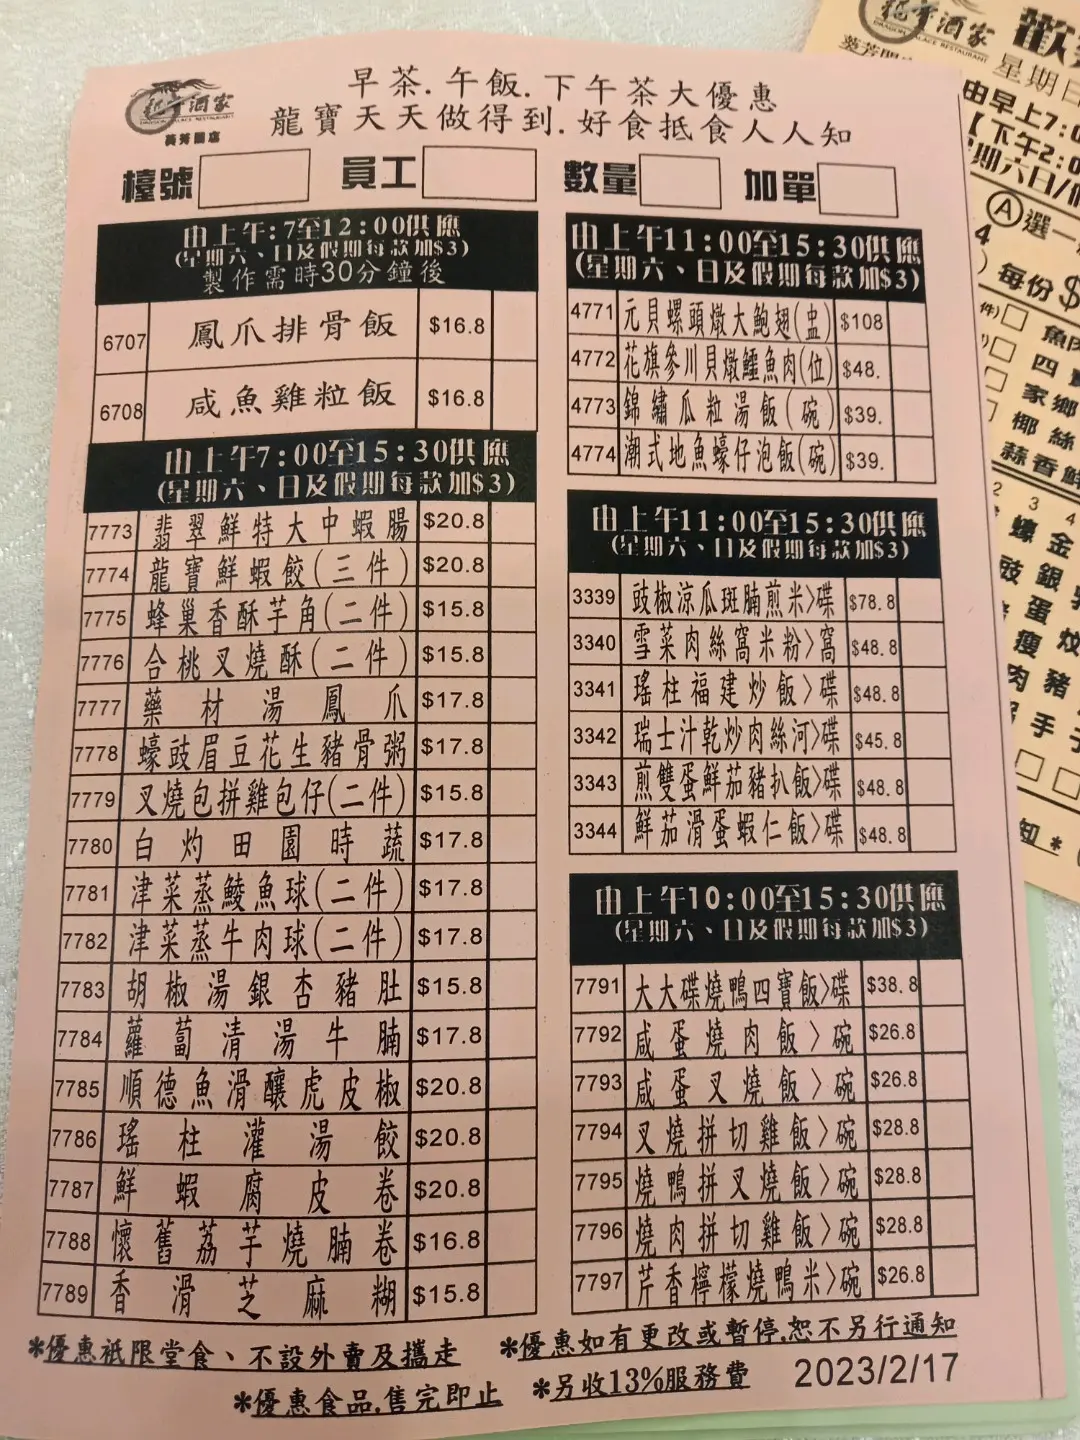 龍寶酒家
DRAGON PALACE RESTAURANT
葵芳閣店
早茶.午飯.下午茶大優惠
龍寶天天做得到.好食抵食人人知
檯號
員工
數量
加單
由上午:7至12:00供應
(星期六、日及假期每款加$3)
製作需時30分鐘後
6707 鳳爪排骨飯 $16.8
6708 咸魚雞粒飯 $16.8
由上午7:00至15:30供應
(星期六、日及假期每款加$3)
7773 翡翠鮮特大中蝦腸 $20.8
7774 龍寶鮮蝦餃(三件) $20.8
7775 蜂巢香酥芋角(二件) $15.8
7776 合桃叉燒酥(二件) $15.8
7777 藥材湯鳳爪 $17.8
7778 蠔豉眉豆花生豬骨粥 $17.8
7779 叉燒包拼雞包仔(二件) $15.8
7780 白灼田園時蔬 $17.8
7781 津菜蒸鯪魚球(二件) $17.8
7782 津菜蒸牛肉球(二件) $17.8
7783 胡椒湯銀杏豬肚 $15.8
7784 蘿蔔清湯牛腩 $17.8
7785 順德魚滑釀虎皮椒 $20.8
7786 瑤柱灌湯餃 $20.8
7787 鮮蝦腐皮卷 $20.8
7788 懷舊荔芋燒腩卷 $16.8
7789 香滑芝麻糊 $15.8
由上午11:00至15:30供應
(星期六、日及假期每款加$3)
4771 元貝螺頭燉大鮑翅(盅) $108
4772 花旗參川貝燉鱷魚肉(位) $48.
4773 錦繡瓜粒湯飯(碗) $39.
4774 潮式地魚蠔仔泡飯(碗) $39.
由上午11:00至15:30供應
(星期六、日及假期每款加$3)
3339 豉椒涼瓜斑腩煎米>碟 $78.8
3340 雪菜肉絲窩米粉>窩 $48.8
3341 瑤柱福建炒飯>碟 $48.8
3342 瑞士汁乾炒肉絲河>碟 $45.8
3343 煎雙蛋鮮茄豬扒飯>碟 $48.8
3344 鮮茄滑蛋蝦仁飯>碟 $48.8
由上午10:00至15:30供應
(星期六、日及假期每款加$3)
7791 大大碟燒鴨四寶飯>碟 $38.8
7792 咸蛋燒肉飯>碗 $26.8
7793 咸蛋叉燒飯>碗 $26.8
7794 叉燒拼切雞飯>碗 $28.8
7795 燒鴨拼叉燒飯>碗 $28.8
7796 燒肉拼切雞飯>碗 $28.8
7797 芹香檸檬燒鴨米>碗 $26.8
*優惠衹限堂食、不設外賣及攜走
*優惠如有更改或暫停.恕不另行通知
*優惠食品.售完即止
*另收13%服務費
2023/2/17
龍寶酒家
星期日
由早上7:0
【下午2:0
Ⓐ選一
每份$
魚肉
四
家鄉
椰絲
蒜香鮮
2 3 4
蠔金
豉銀
蛋
瘦
肉豬
手
知*